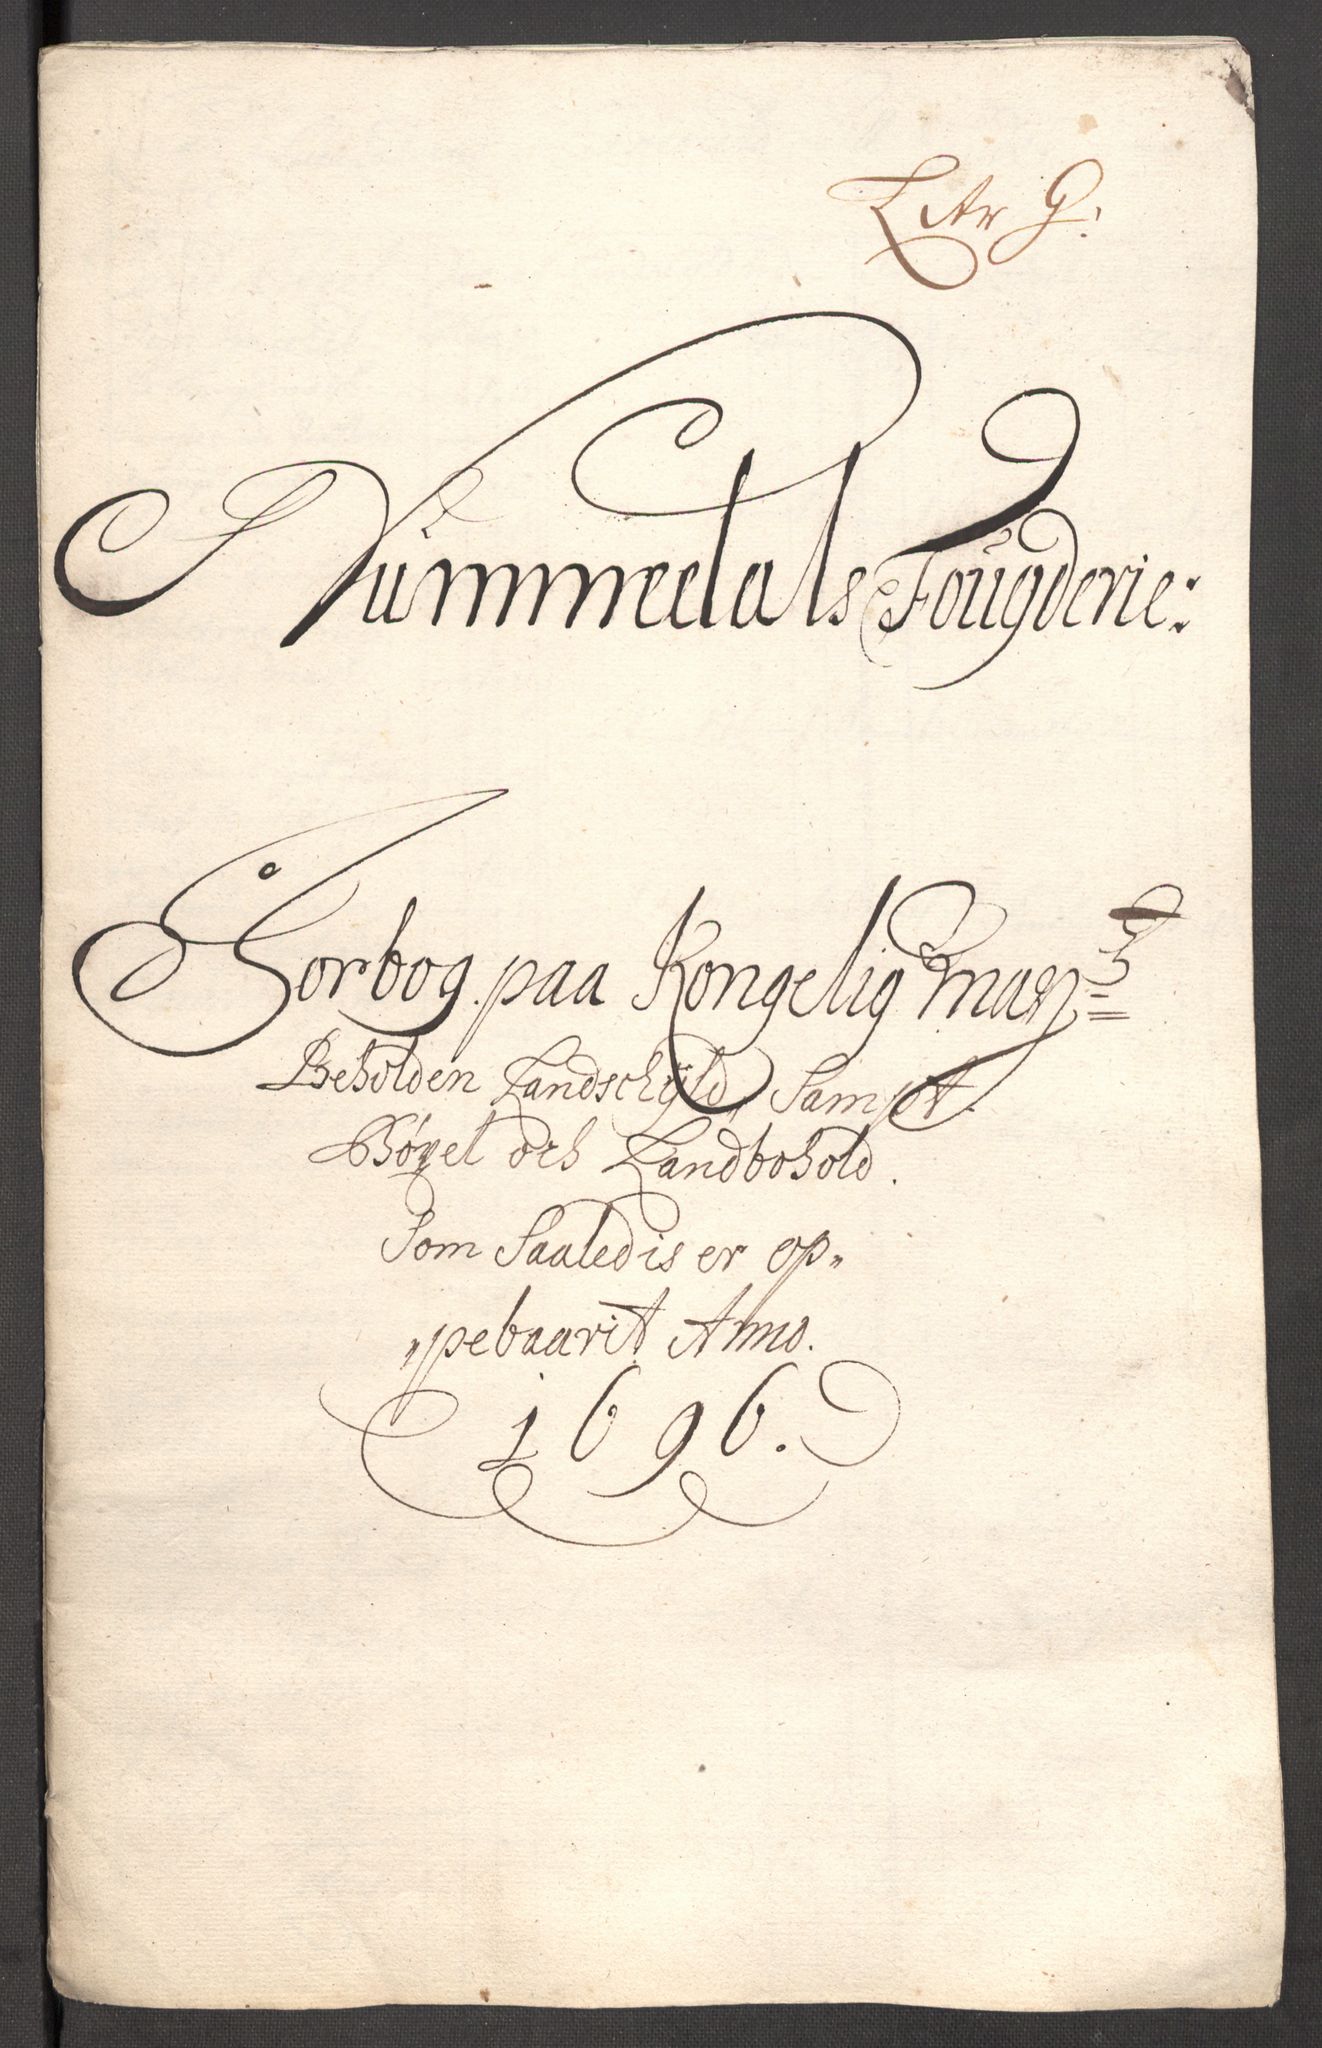 Litr G.
Nummedals Fougderie:
Jorbog paa Kongelig May:
Beholden Landschÿld, Sampt
Bøxel och Landbohold.
Som Saaledis er op„
„pebaarit Anno.
1696.